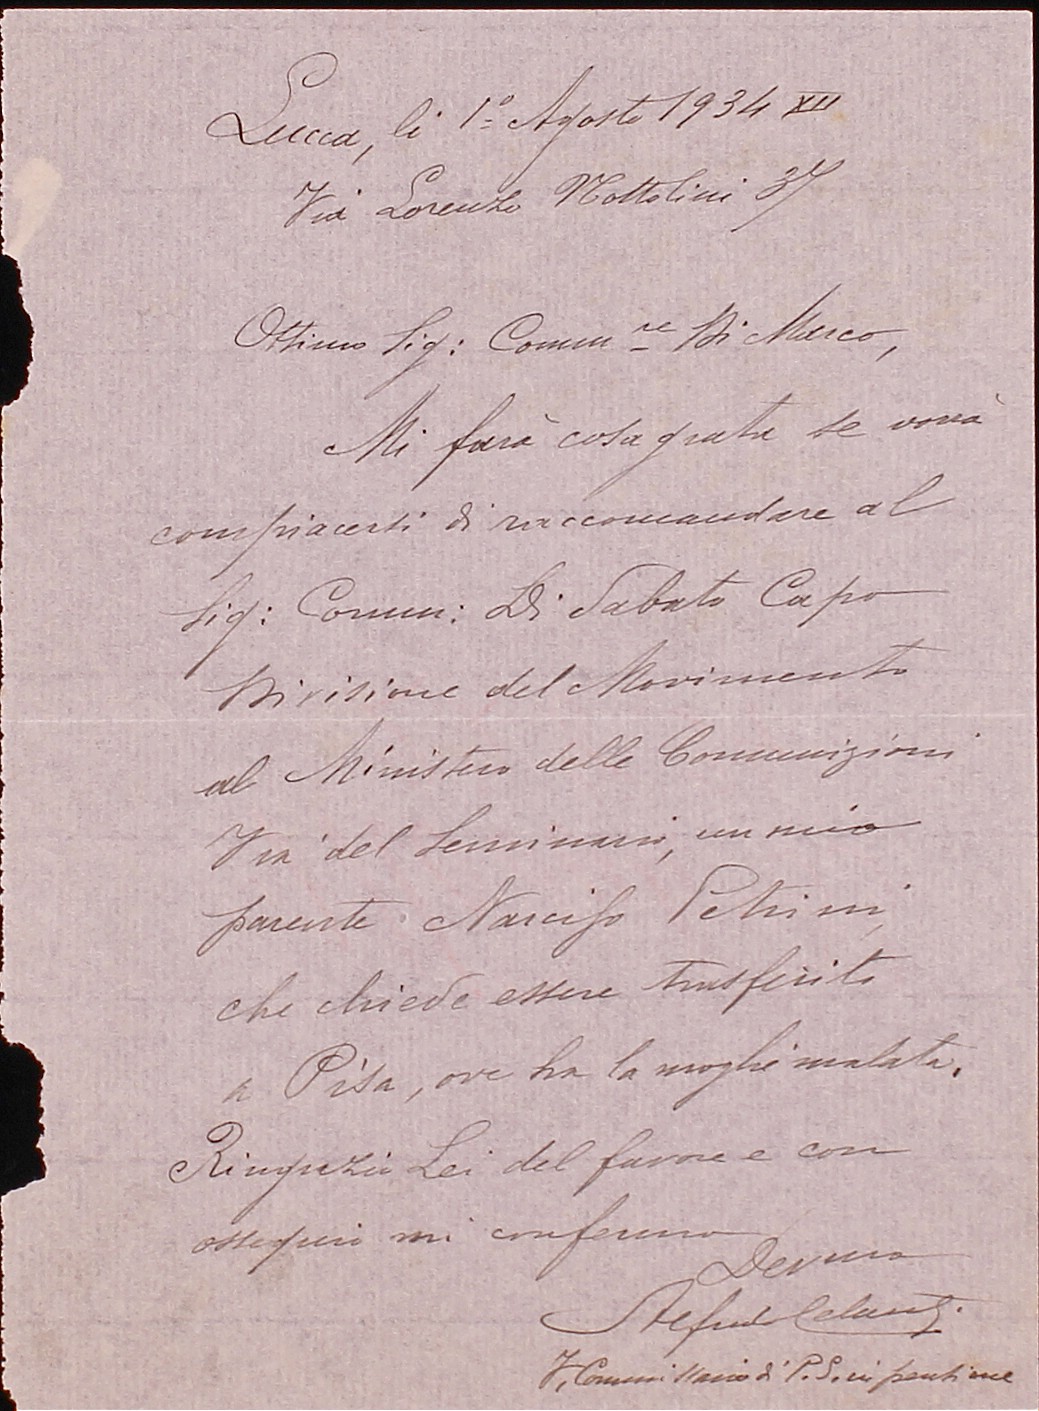 Lucca, li 1º Agosto 1934 XII
Via Lorenzo Nottolini 37
Ottimo Sig: Comm re Di Marco,
Mi farà cosa grata se vorrà
compiacersi di raccomandare al
Sig: Comm: Di Sabato Capo
Divisione del Movimento
al Ministero delle Comunizioni
Via del Seminario, un mio
parente Narciso Petrini,
che chiede essere trasferito
a Pisa, ove ha la moglie malata.
Ringrazio Lei del favore e con
ossequio mi confermo
Dev mo
Alfredo
V. Commissario di P. S. in pensione